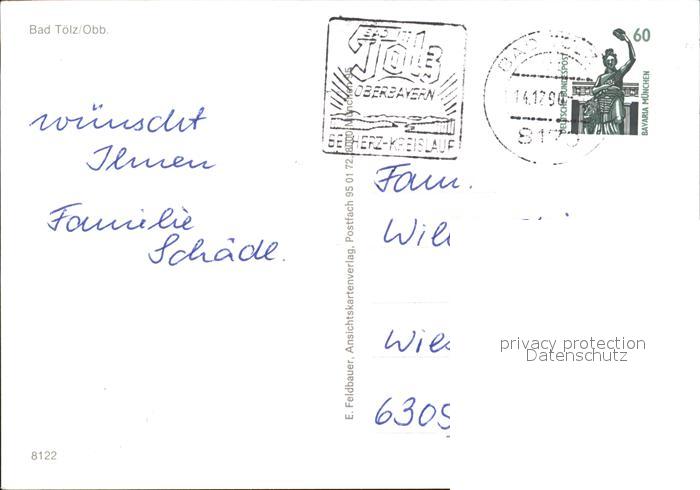 Bad Tölz/Obb.
BAD
Tölz
OBERBAYERN
BEI HERZ-KREISLAUF
BAD TÖLZ
14.12.90
817
60
DEUTSCHE BUNDESPOST
BAVARIA MÜNCHEN
wünscht
Ihnen
Familie
Schädl.
E. Feldbauer, Ansichtskartenverlag, Postfach 95 01 72, 8000 München 95
Fam.
Wil
Wies
6309
privacy protection
Datenschutz
8122